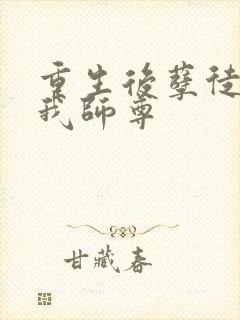 重生後孽徒
我師尊
甘藏春